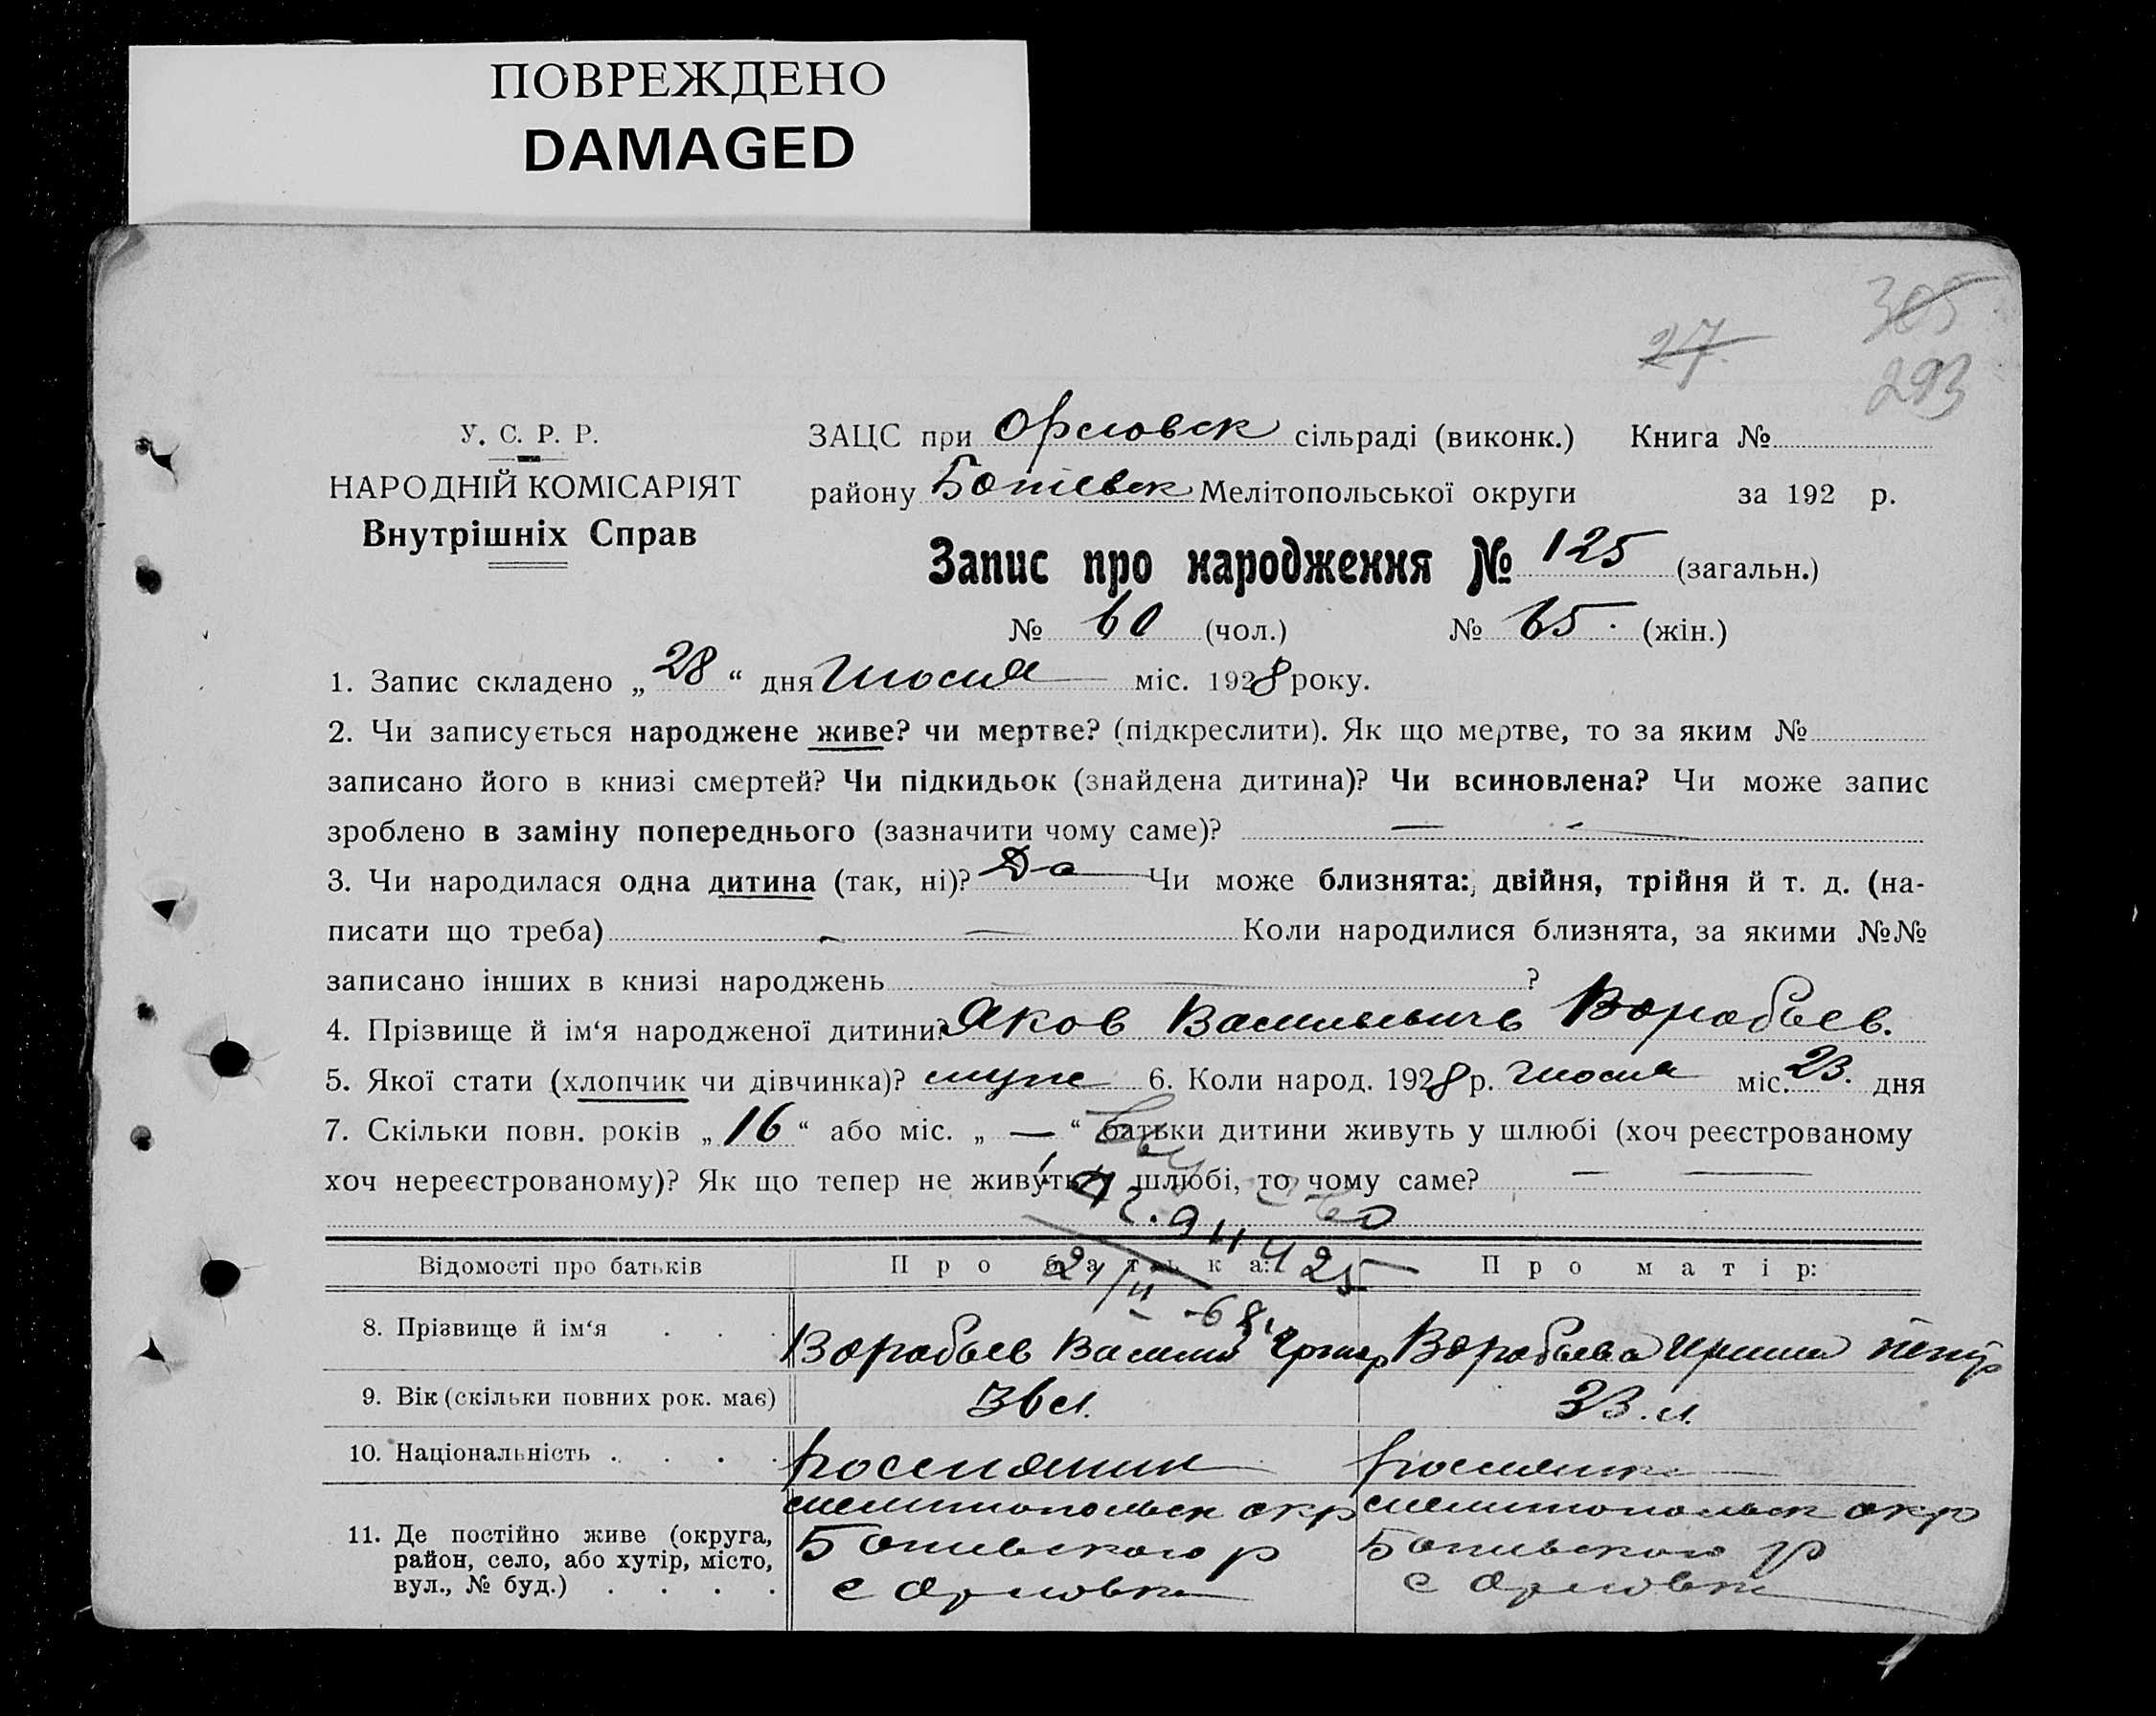 ПОВРЕЖДЕНО
DAMAGED
27
305
293
У. С. Р. Р.
НАРОДНІЙ КОМІСАРІЯТ
Внутрішніх Справ
ЗАЦС при Орловск сільраді (виконк.) Книга №
району Ботіевск Мелітопольської округи за 192 р.
Запис про народження № 125 (загальн.)
№ 60 (чол.) № 65. (жін.)
1. Запис складено „28“ дня Июля міс. 1928 року.
2. Чи записується народжене живе? чи мертве? (підкреслити). Як що мертве, то за яким №
записано його в книзі смертей? Чи підкидьок (знайдена дитина)? Чи всиновлена? Чи може запис
зроблено в заміну попереднього (зазначити чому саме)? —
3. Чи народилася одна дитина (так, ні)? Да Чи може близнята: двійня, трійня й т. д. (на-
писати що треба) — Коли народилися близнята, за якими №№
записано інших в книзі народжень — ?
4. Прізвище й ім‘я народженої дитини? Яков Васильевичь Воробьев.
5. Якої стати (хлопчик чи дівчинка)? муж 6. Коли народ. 1928 р. Июля міс. 23. дня
7. Скільки повн. років „16“ або міс. „—“ батьки дитини живуть у шлюбі (хоч реєстрованому
хоч нереєстрованому)? Як що тепер не живуть у шлюбі, то чому саме? —
Відомості про батьків Про батька: Про матір:
8. Прізвище й ім‘я . . . Воробьев Василий Воробьева Ирина Петр
9. Вік (скільки повних рок. має) 36 л. 33. л.
10. Національність . . . . россиянин россиянка
11. Де постійно живе (округа, район, село, або хутір, місто, вул., № буд.) . . . .
мелитопольск окр мелитопольск окр
Ботиевского р Ботиевского р
с Орловка с Орловка